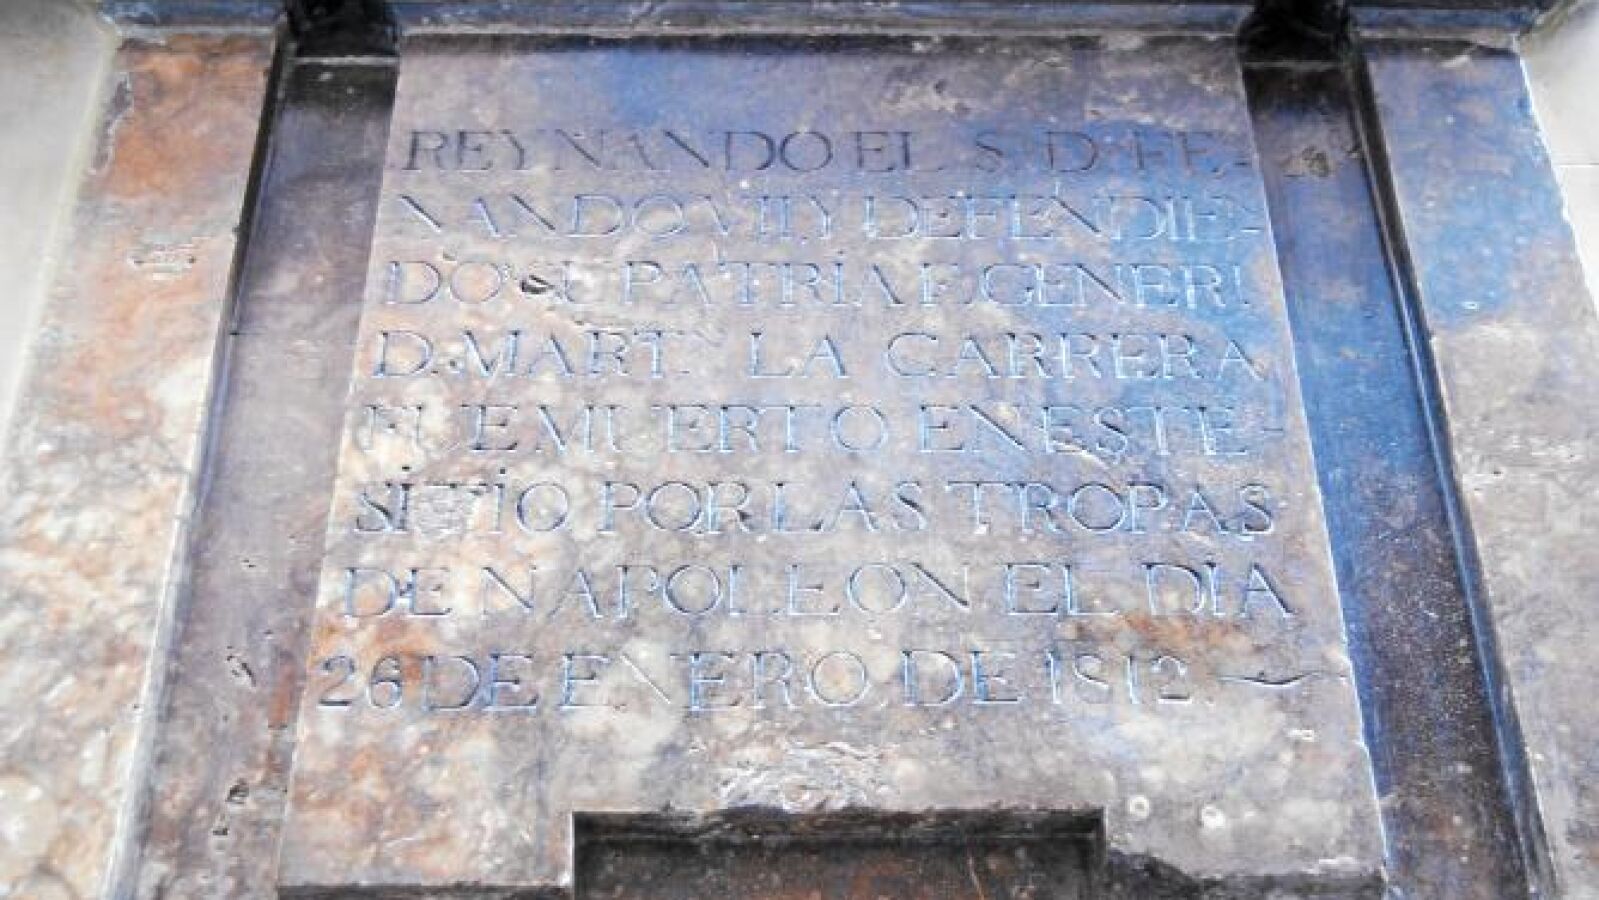 REYNANDO EL S. D. FE-
NANDO VII Y DEFENDIE-
DO SU PATRÍA E GENERL
D. MARTN LA CARRERA
FUE MUERTO EN ESTE-
SITIO POR LAS TROPAS
DE NAPOLEON EL DÍA
26 DE ENERO DE 1812.